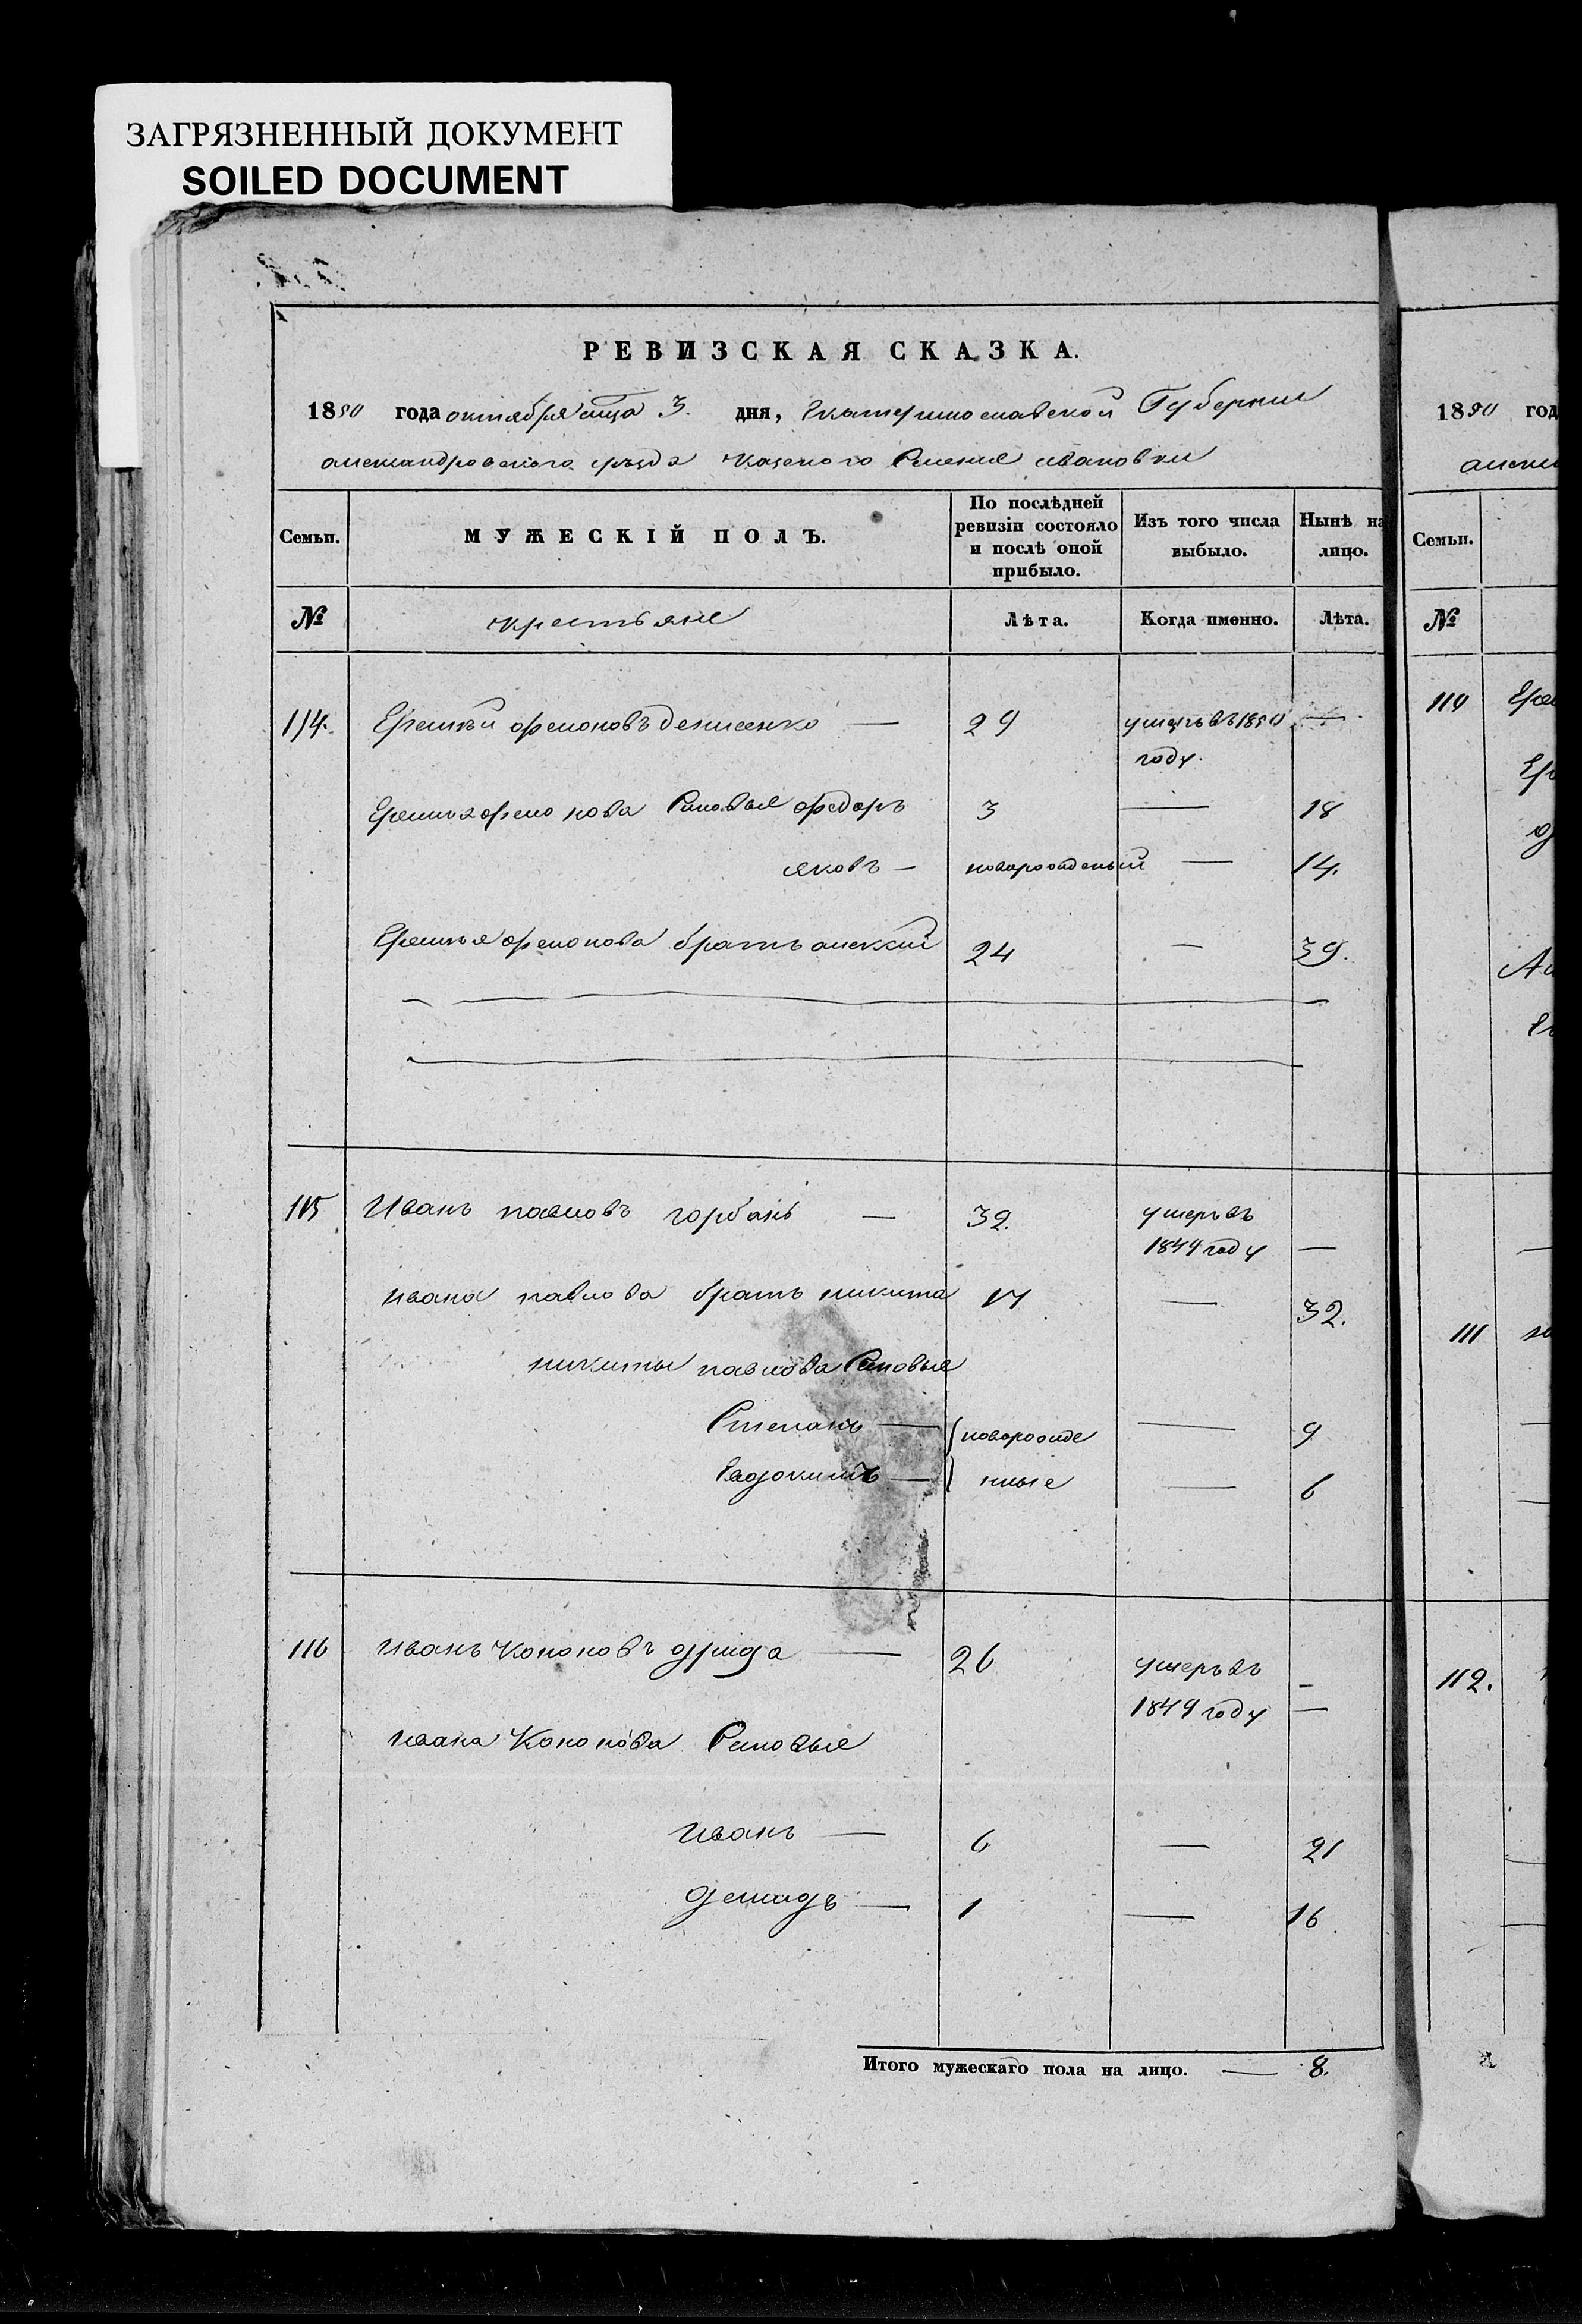 ЗАГРЯЗНЕННЫЙ ДОКУМЕНТ
SOILED DOCUMENT
РЕВИЗСКАЯ СКАЗКА.
1850 года октября мца 3. дня, Екатеринославской Губернии
александровского уезда казеного Селения ивановки
Семьи.
МУЖЕСКІЙ ПОЛЪ.
По послѣдней ревизіи состояло и послѣ оной прибыло.
Изъ того числа выбыло.
Нынѣ на лицо.
№ крестьяне Лѣта. Когда именно. Лѣта.
114. денисенко — 29 умеръ въ 1850 —
году.
Синовья федоръ 3 — 18
яковъ — новарожденый — 14.
братъ алексий 24 — 39.
115 Иванъ павловъ горбань — 32. умеръ въ
1849 году —
ивана павлова братъ никита 17 — 32.
никиты павлова Синовья
Степанъ — новарожде — 9
Евдокимъ — нные — 6
116 иванъ Кононовъ — 26 умеръ въ —
1849 году —
ивана Кононова Синовья
иванъ — 6 — 21
демидъ — 1 — 16
Итого мужескаго пола на лицо. — 8.
1850 год
Семьи.
№
110
111
112.